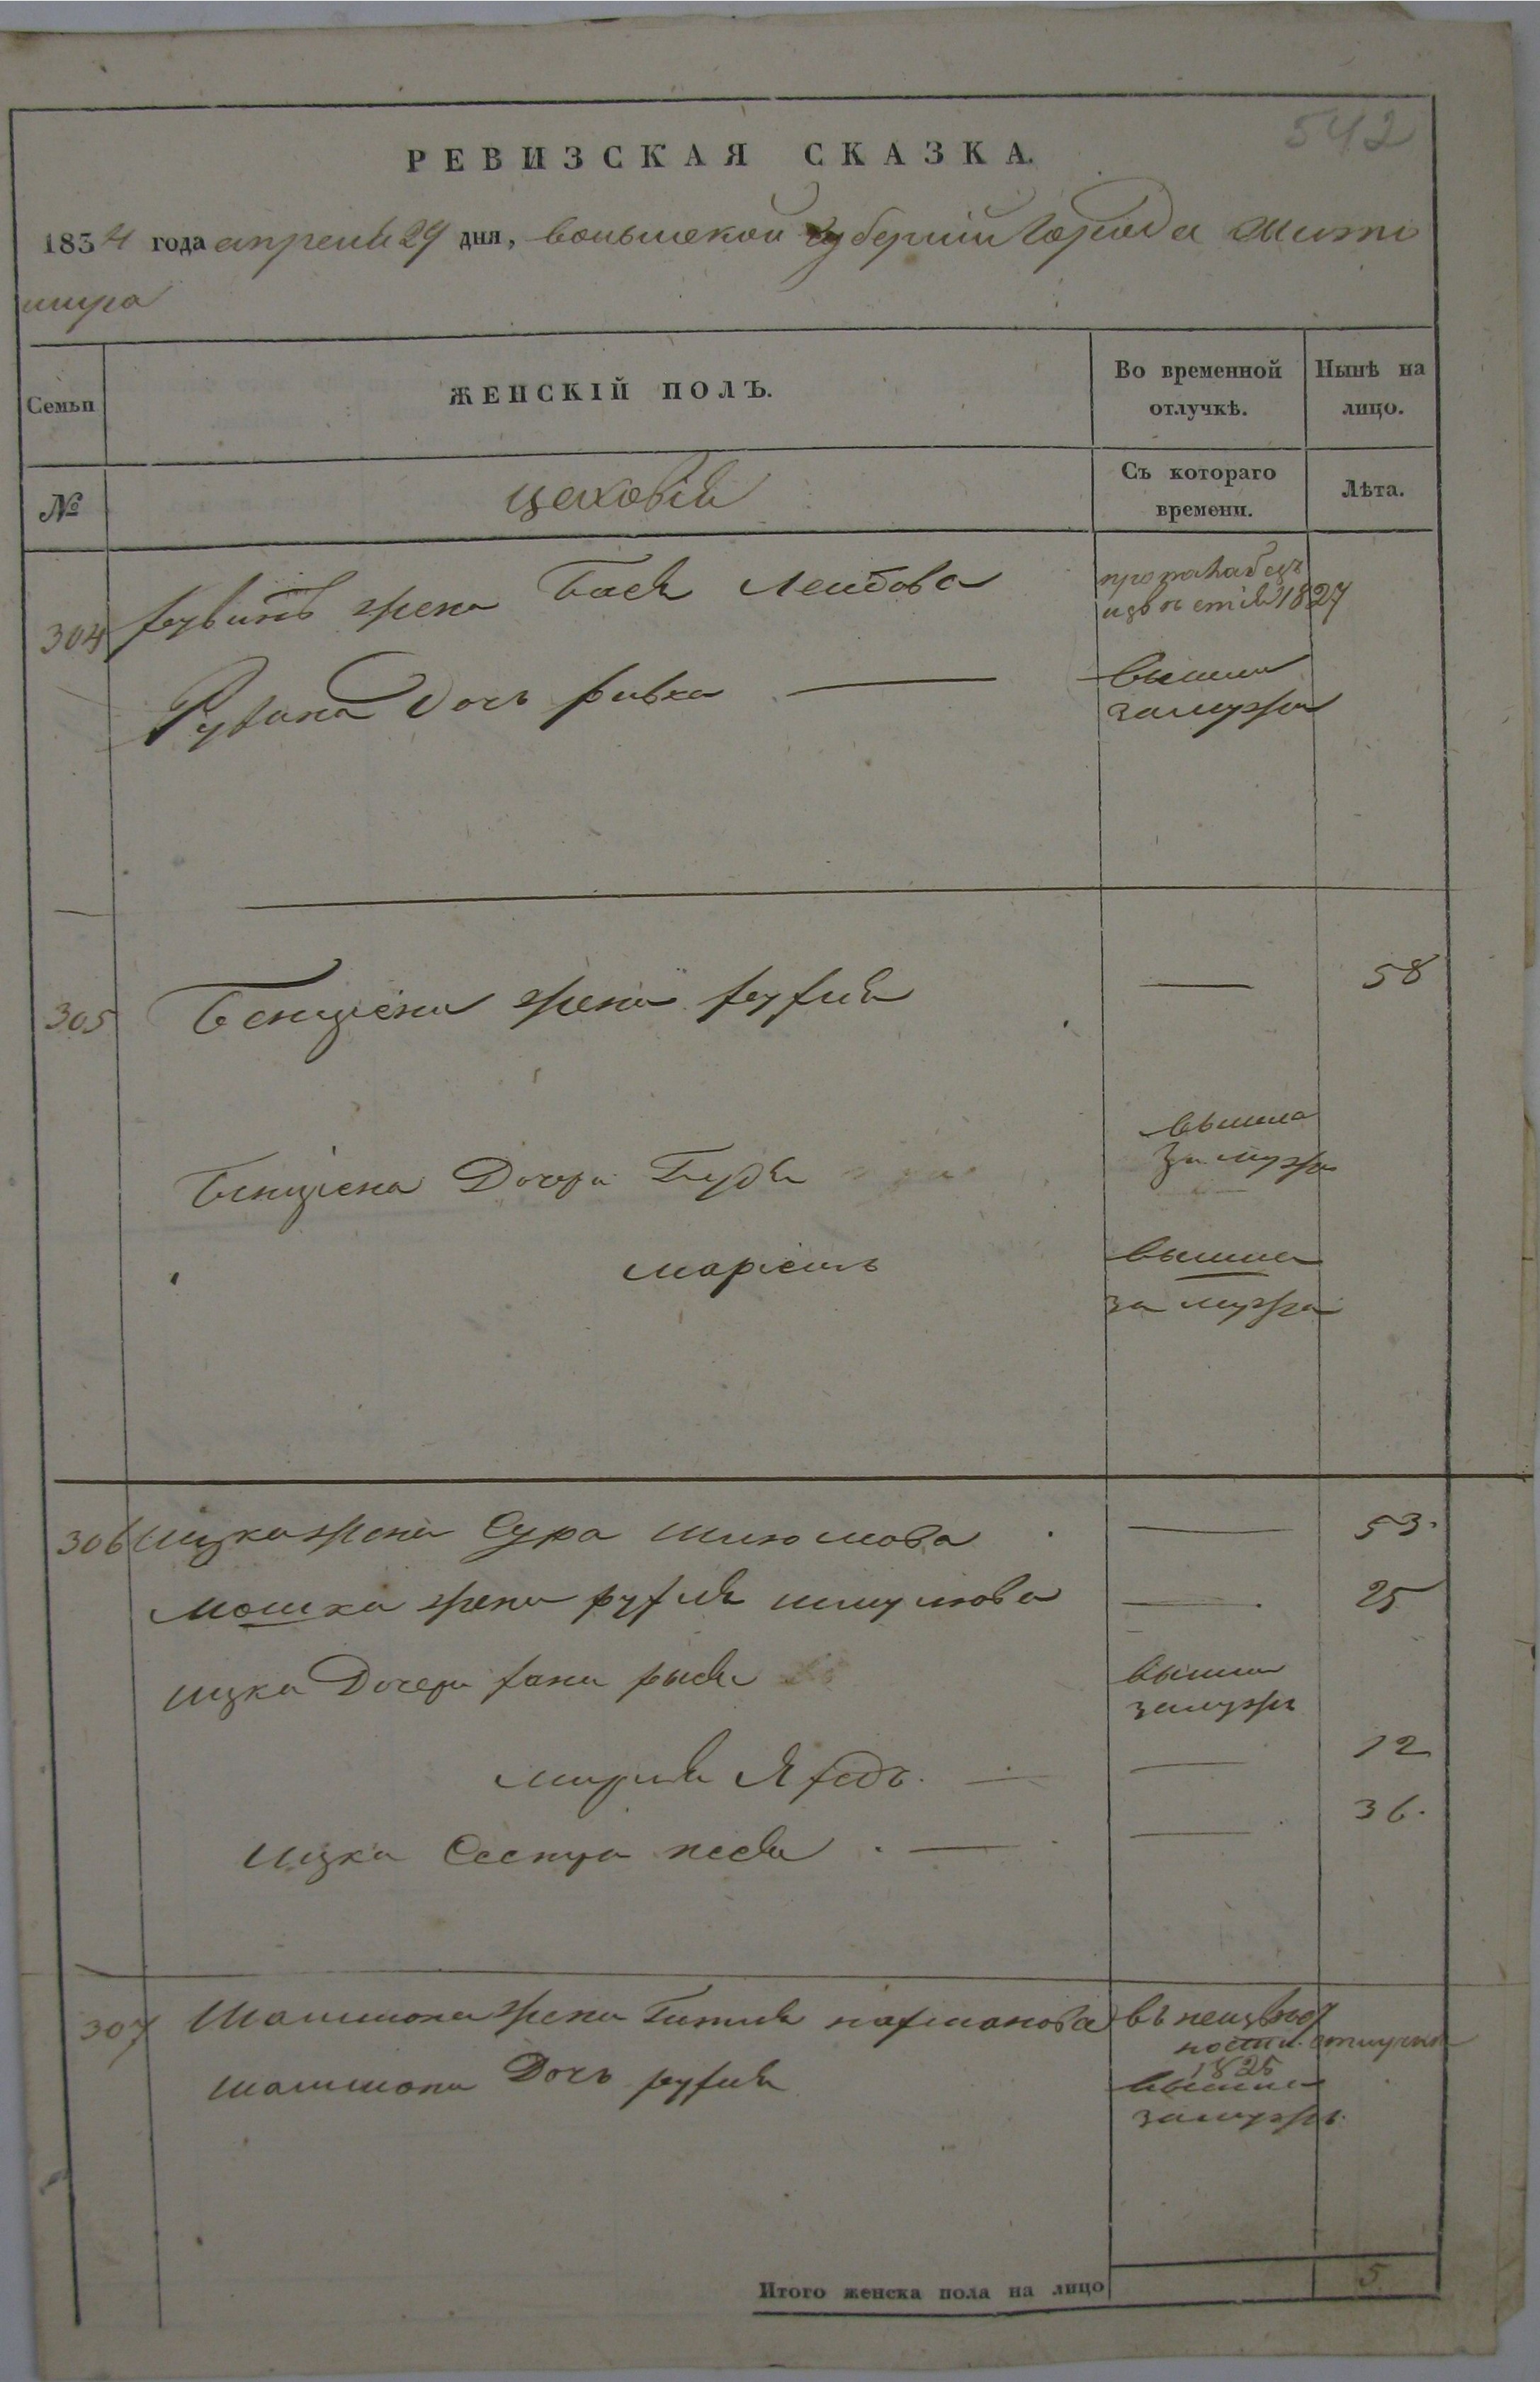 542
РЕВИЗСКАЯ СКАЗКА.
1834 года апреля 29 дня, волынской губернии города Жито
мира
Семьи
ЖЕНСКІЙ ПОЛЪ.
Во временной отлучкѣ.
Нынѣ на лицо.
№
цеховія
Съ котораго времени.
Лѣта.
304 Рувинъ жена Бася Лейбова пропала безъ
извѣстія 1827
Рувина дочь ривка — вышла
замужъ
305 Бенціона жена рухля — 58
Бенціона Дочери Будя вышла
за мужа
маріемъ вышла
за мужа
306 ицка жена Сура шлюмова — 53.
мошка жена рухля шмулова — 25
ицка Дочери хана рыся вышла
замужъ
— 12
ицка Сестра песя . — — 36.
307 Шаммона жена Битля нахманова въ неизвѣст
ности отлучки
1825
шаммона Дочь рухля вышла
замужъ.
Итого женска пола на лицо 5